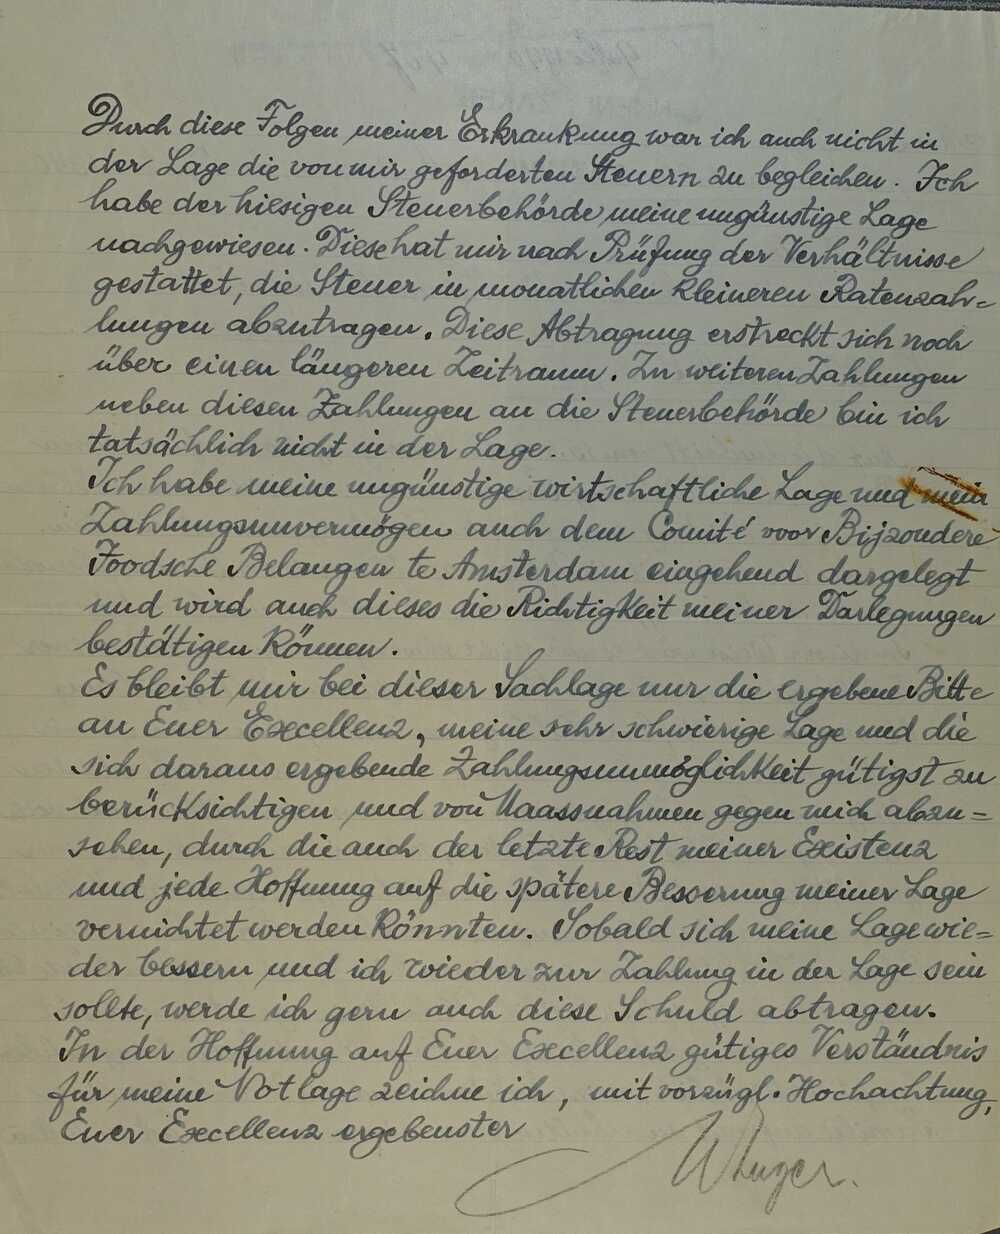 Durch diese Folgen meiner Erkrankung war ich auch nicht in
der Lage die von mir geforderten Steuern zu begleichen. Ich
habe der hiesigen Steuerbehörde meine ungünstige Lage
nachgewiesen. Diese hat mir nach Prüfung der Verhältnisse
gestattet, die Steuer in monatlichen kleineren Ratenzah=
lungen abzutragen. Diese Abtragung erstreckt sich noch
über einen längeren Zeitraum. Zu weiteren Zahlungen
neben diesen Zahlungen an die Steuerbehörde bin ich
tatsächlich nicht in der Lage.
Ich habe meine ungünstige wirtschaftliche Lage und mein
Zahlungsunvermögen auch dem Comité voor Bijzondere
Joodsche Belangen te Amsterdam eingehend dargelegt
und wird auch dieses die Richtigkeit meiner Darlegungen
bestätigen können.
Es bleibt mir bei dieser Sachlage nur die ergebene Bitte
an Euer Excellenz, meine sehr schwierige Lage und die
sich daraus ergebende Zahlungsunmöglichkeit gütigst zu
berücksichtigen und von Maassnahmen gegen mich abzu=
sehen, durch die auch der letzte Rest meiner Existenz
und jede Hoffnung auf die spätere Besserung meiner Lage
vernichtet werden könnten. Sobald sich meine Lage wie=
der bessern und ich wieder zur Zahlung in der Lage sein
sollte, werde ich gern auch diese Schuld abtragen.
In der Hoffnung auf Euer Excellenz gütiges Verständnis
für meine Notlage zeichne ich, mit vorzügl. Hochachtung,
Euer Excellenz ergebenster